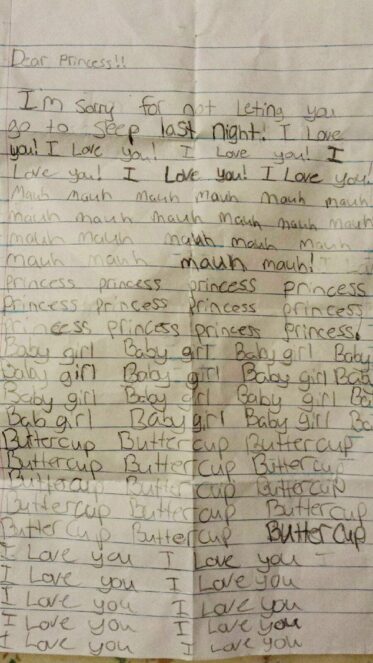 Dear Princess!!
I'm sorry for not leting you
go to seep last night! I Love
you! I Love you! I Love you! I
Love you! I Love you! I Love you!
Mauh mauh mauh mauh mauh mauh!
mauh mauh mauh mauh mauh mauh
mauh mauh mauh mauh mauh
mauh mauh mauh mauh!
princess princess princess princess
princess princess princess princess
princess princess princess princess.
Baby girl Baby girl Baby girl Baby
Baby girl Baby girl Baby girl Bab
Baby girl Baby girl Baby girl Ba
Bab girl Baby girl Baby girl Ba
Buttercup Buttercup Buttercup
Buttercup Buttercup Buttercup
Buttercup Buttercup Buttercup
Buttercup Buttercup Buttercup
Buttercup Buttercup Buttercup
I Love you I Love you
I Love you I Love you
I Love you I Love you
I Love you I Love you
I Love you I Love you